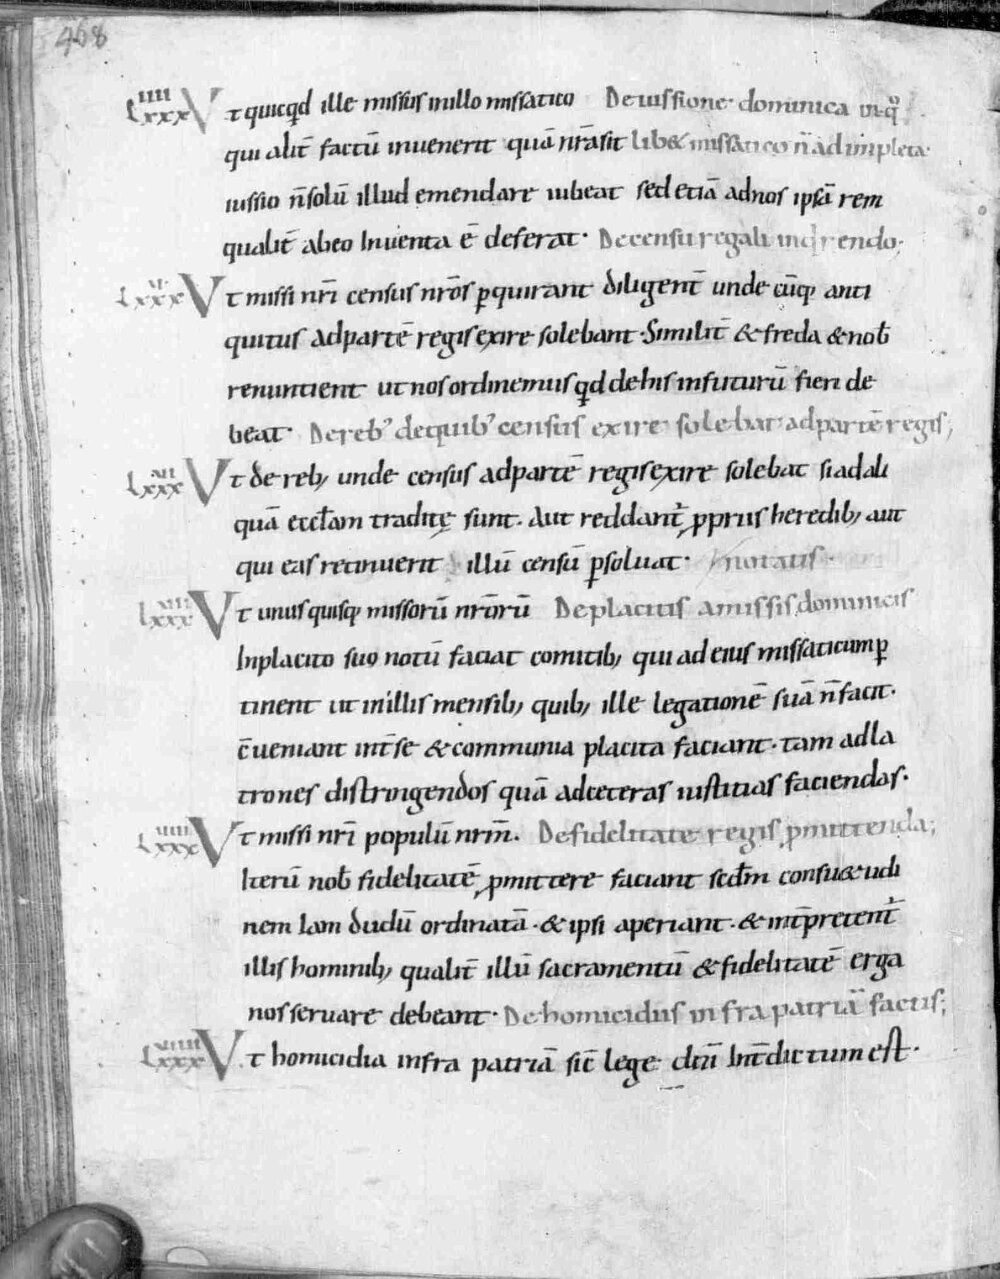 468
LXXXIIII Ut quicqđ ille missus inillo missatico De iussione dominica in q̊
qui alit̄ factū invenerit quā nr̄a sit lib& missatico n̄ adimpleta
iussio n̄ solū illud emendare iubeat sed etiā ad nos ipsā rem
qualit̄ ab eo Inventa ē deferat· De censu regali inqrendo;
LXXXVI Ut missi nr̄i census nr̄os ꝑquirant diligent̄ unde cūq; anti
quitus ad partē regis exire solebant· Similit̄ & freda & nob̄
renuntient ut nos ordinemus qđ de his in futurū fieri de
beat· De reb; de quib; census exire solebat ad partē regis;
LXXXVII Ut de reb; unde census ad partē regis exire solebat si ad ali
quā eccłam traditę sunt· Aut reddant̄ ꝓpriis heredib; aut
qui eas retinuerit illū censū ꝑsoluat· notatis·
LXXXVIII Ut unus quisq; missorū nr̄orū De placitis a missis dominicis
In placito suo notū faciat comitib; qui ad eius missaticum ꝑ
tinent ut in illis mensib; quib; ille legationē suā n̄ facit·
c̄ueniant int̄ se & communia placita faciant· tam ad la
trones distringendos quā ad ceteras iustitias faciendas·
LXXXVIIII Ut missi nr̄i populū nr̄m· De fidelitate regis ꝓmittenda;
Iterū nob̄ fidelitatē ꝓmittere faciant scđm consu&udi
nem Iam dudū ordinatā· & ipsi aperiant· & int̄pretent̄
illis hominib; qualit̄ illū sacramentū & fidelitatē erga
nos servare debeant· De homicidiis infra patriā factis;
LXXXVIIIII Ut homicidia infra patriā sic̄ lege dn̄i Int̄dictum est·